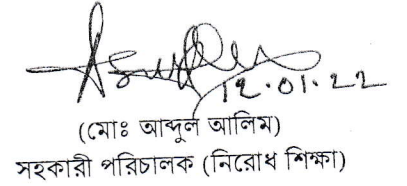 12.01.22
(মোঃ আব্দুল আলিম)
সহকারী পরিচালক (নিরোধ শিক্ষা)